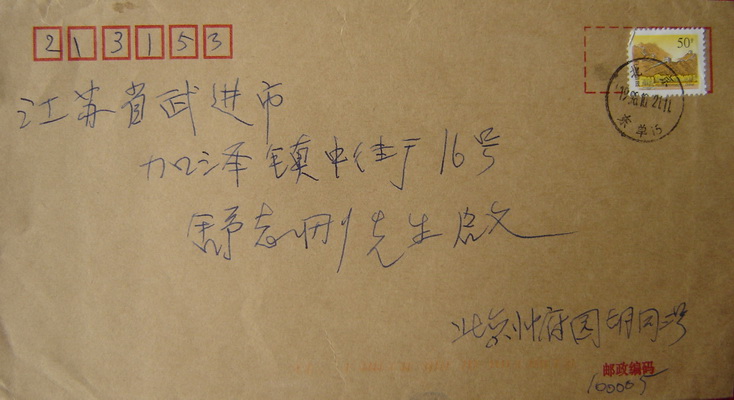 213153
50分
江苏省武进市
加泽镇中街16号
舒志刚先生启
北京
邮政编码
100005